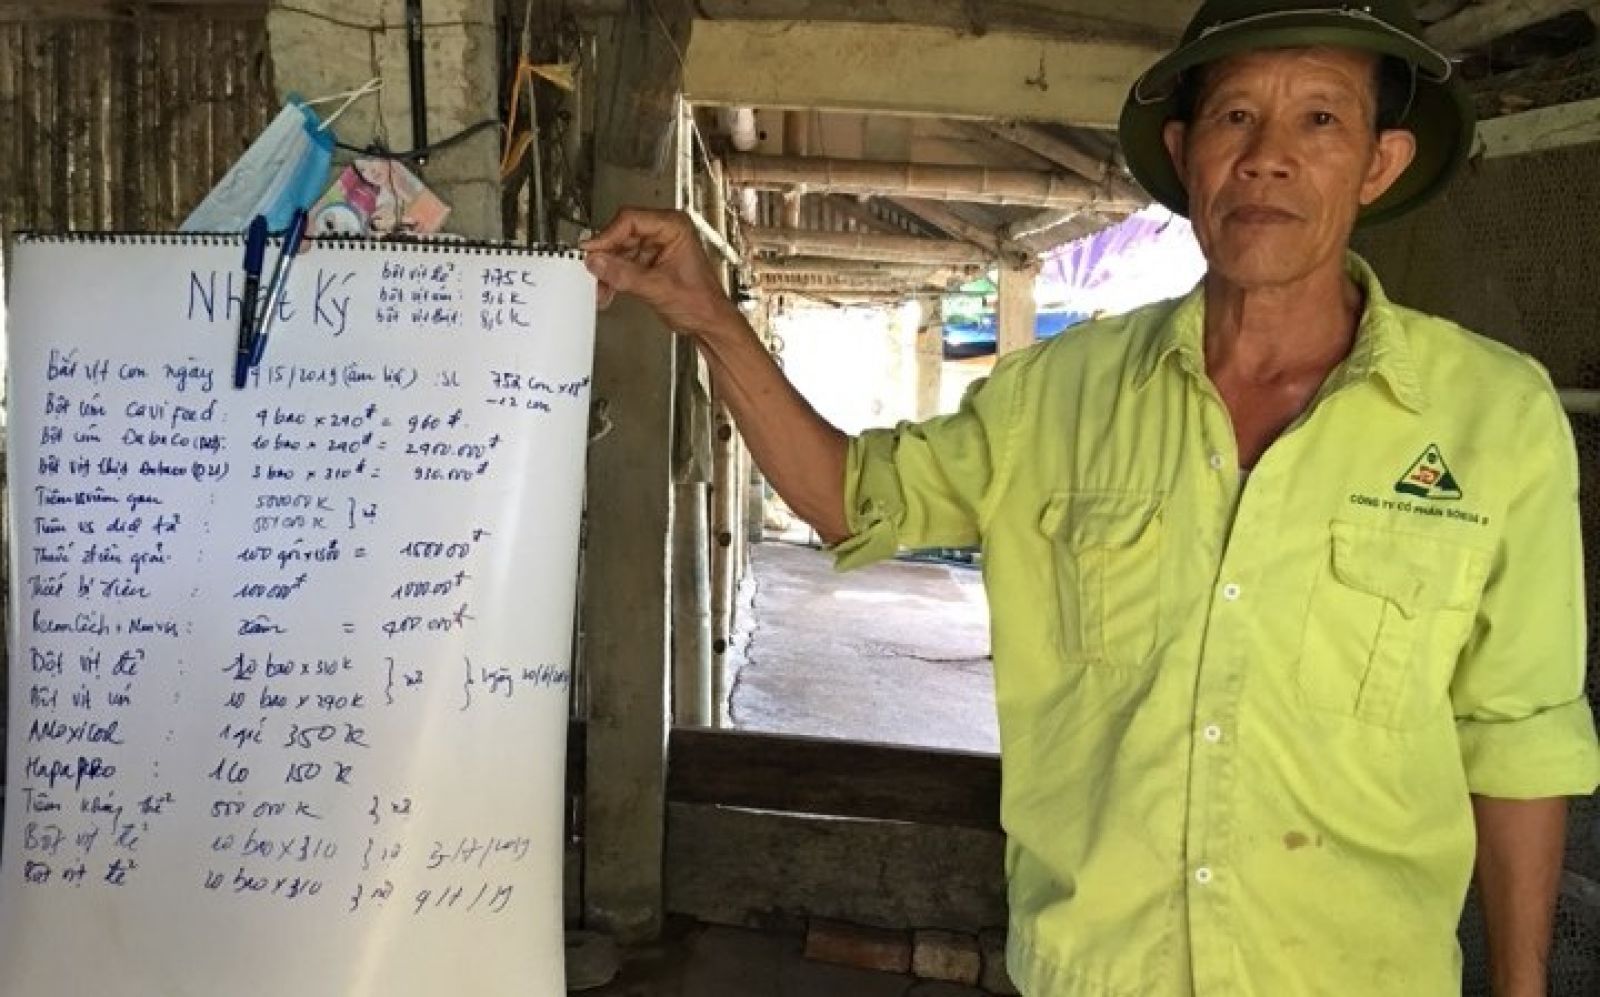 Nhật Ký
bột vịt đẻ: 775K
bột vịt úm: 9,6K
bột vịt thịt: 8,6K
Bắt vịt con ngày 9/5/2019 (âm lịch) : SL 752 con
-12 con
Bột úm Cavi Feed: 4 bao × 240đ = 960đ.
Bột úm Dabaco: 10 bao × 290đ = 2900.000đ
Bột vịt thịt Dabaco 3 bao × 310đ = 930.000đ
Tiêm viêm gan : 500000K } x2
Tiêm vs dịch tả : 500000K
Thuốc điện giải : 100 gói = 150000đ
Thiết bị điện : 100000đ 100000đ
: = 400.000đ
Bột vịt đẻ : 10 bao × 310K } x2 } ngày
Bột vịt úm : 10 bao × 290K
AMoxicol : 1 350K
HapaPRO : 1 lọ 150K
Tiêm kháng thể 500 000K } x2
Bột vịt đẻ 10 bao × 310 } 5/7/2019
Bột vịt đẻ 10 bao × 310 } 9/7/19
CÔNG TY CỔ PHẦN SÔNG ĐÀ 9